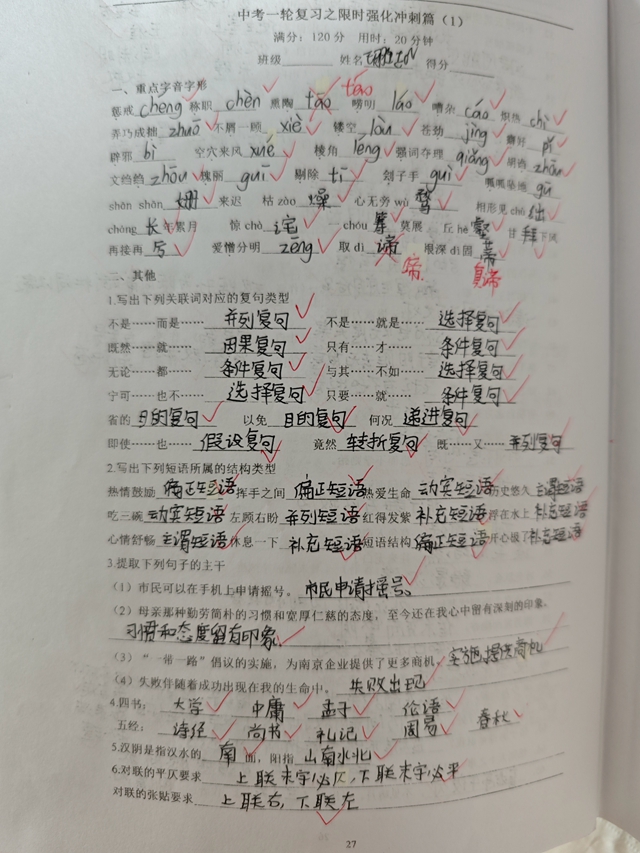 中考一轮复习之限时强化冲刺篇（1）
满分：120分 用时：20分钟
班级 姓名 得分
一、重点字音字形
惩戒 chéng 称职 chèn 熏陶 tāo táo 唠叨 láo 嘈杂 cáo 炽热 chì
弄巧成拙 zhuō 不屑一顾 xiè 镂空 lòu 苍劲 jìng 癖好 pǐ
辟邪 bì 空穴来风 xué 棱角 léng 强词夺理 qiǎng 胡诌 zhōu
文绉绉 zhōu 瑰丽 guī 剔除 tī 刽子手 guì 呱呱坠地 gū
shān shān 姗 来迟 枯 zào 燥 心无旁 wù 骛 相形见 chù 绌
cháng 长 年累月 惊 chà 诧 一 chóu 筹 莫展 丘 hè 壑 甘 拜 下风
再接再 厉 爱憎分明 zēng 取 dì 谛 缔 根深 dì 固 蒂
二、其他
1.写出下列关联词对应的复句类型
不是……而是…… 并列复句 不是……就是…… 选择复句
既然……就…… 因果复句 只有……才…… 条件复句
无论……都…… 条件复句 与其……不如…… 选择复句
宁可……也不…… 选择复句 只要……就…… 条件复句
省的 目的复句 以免 目的复句 何况 递进复句
即使……也…… 假设复句 竟然 转折复句 既……又…… 并列复句
2.写出下列短语所属的结构类型
热情鼓励 偏正短语 挥手之间 偏正短语 热爱生命 动宾短语 历史悠久 主谓短语
吃三碗 动宾短语 左顾右盼 并列短语 红得发紫 补充短语 浮在水上 补充短语
心情舒畅 主谓短语 休息一下 补充短语 短语结构 偏正短语 开心极了 补充短语
3.提取下列句子的主干
（1）市民可以在手机上申请摇号。 市民申请摇号。
（2）母亲那种勤劳简朴的习惯和宽厚仁慈的态度，至今还在我心中留有深刻的印象。
习惯和态度留有印象
（3）“一带一路”倡议的实施，为南京企业提供了更多商机。 实施提供商机
（4）失败伴随着成功出现在我的生命中。 失败出现
4.四书： 大学 中庸 孟子 伦语
五经： 诗经 尚书 礼记 周易 春秋
5.汉阴是指汉水的 南 面，阳指 山南水北
6.对联的平仄要求 上联末字必仄，下联末字必平
对联的张贴要求 上联右，下联左
27